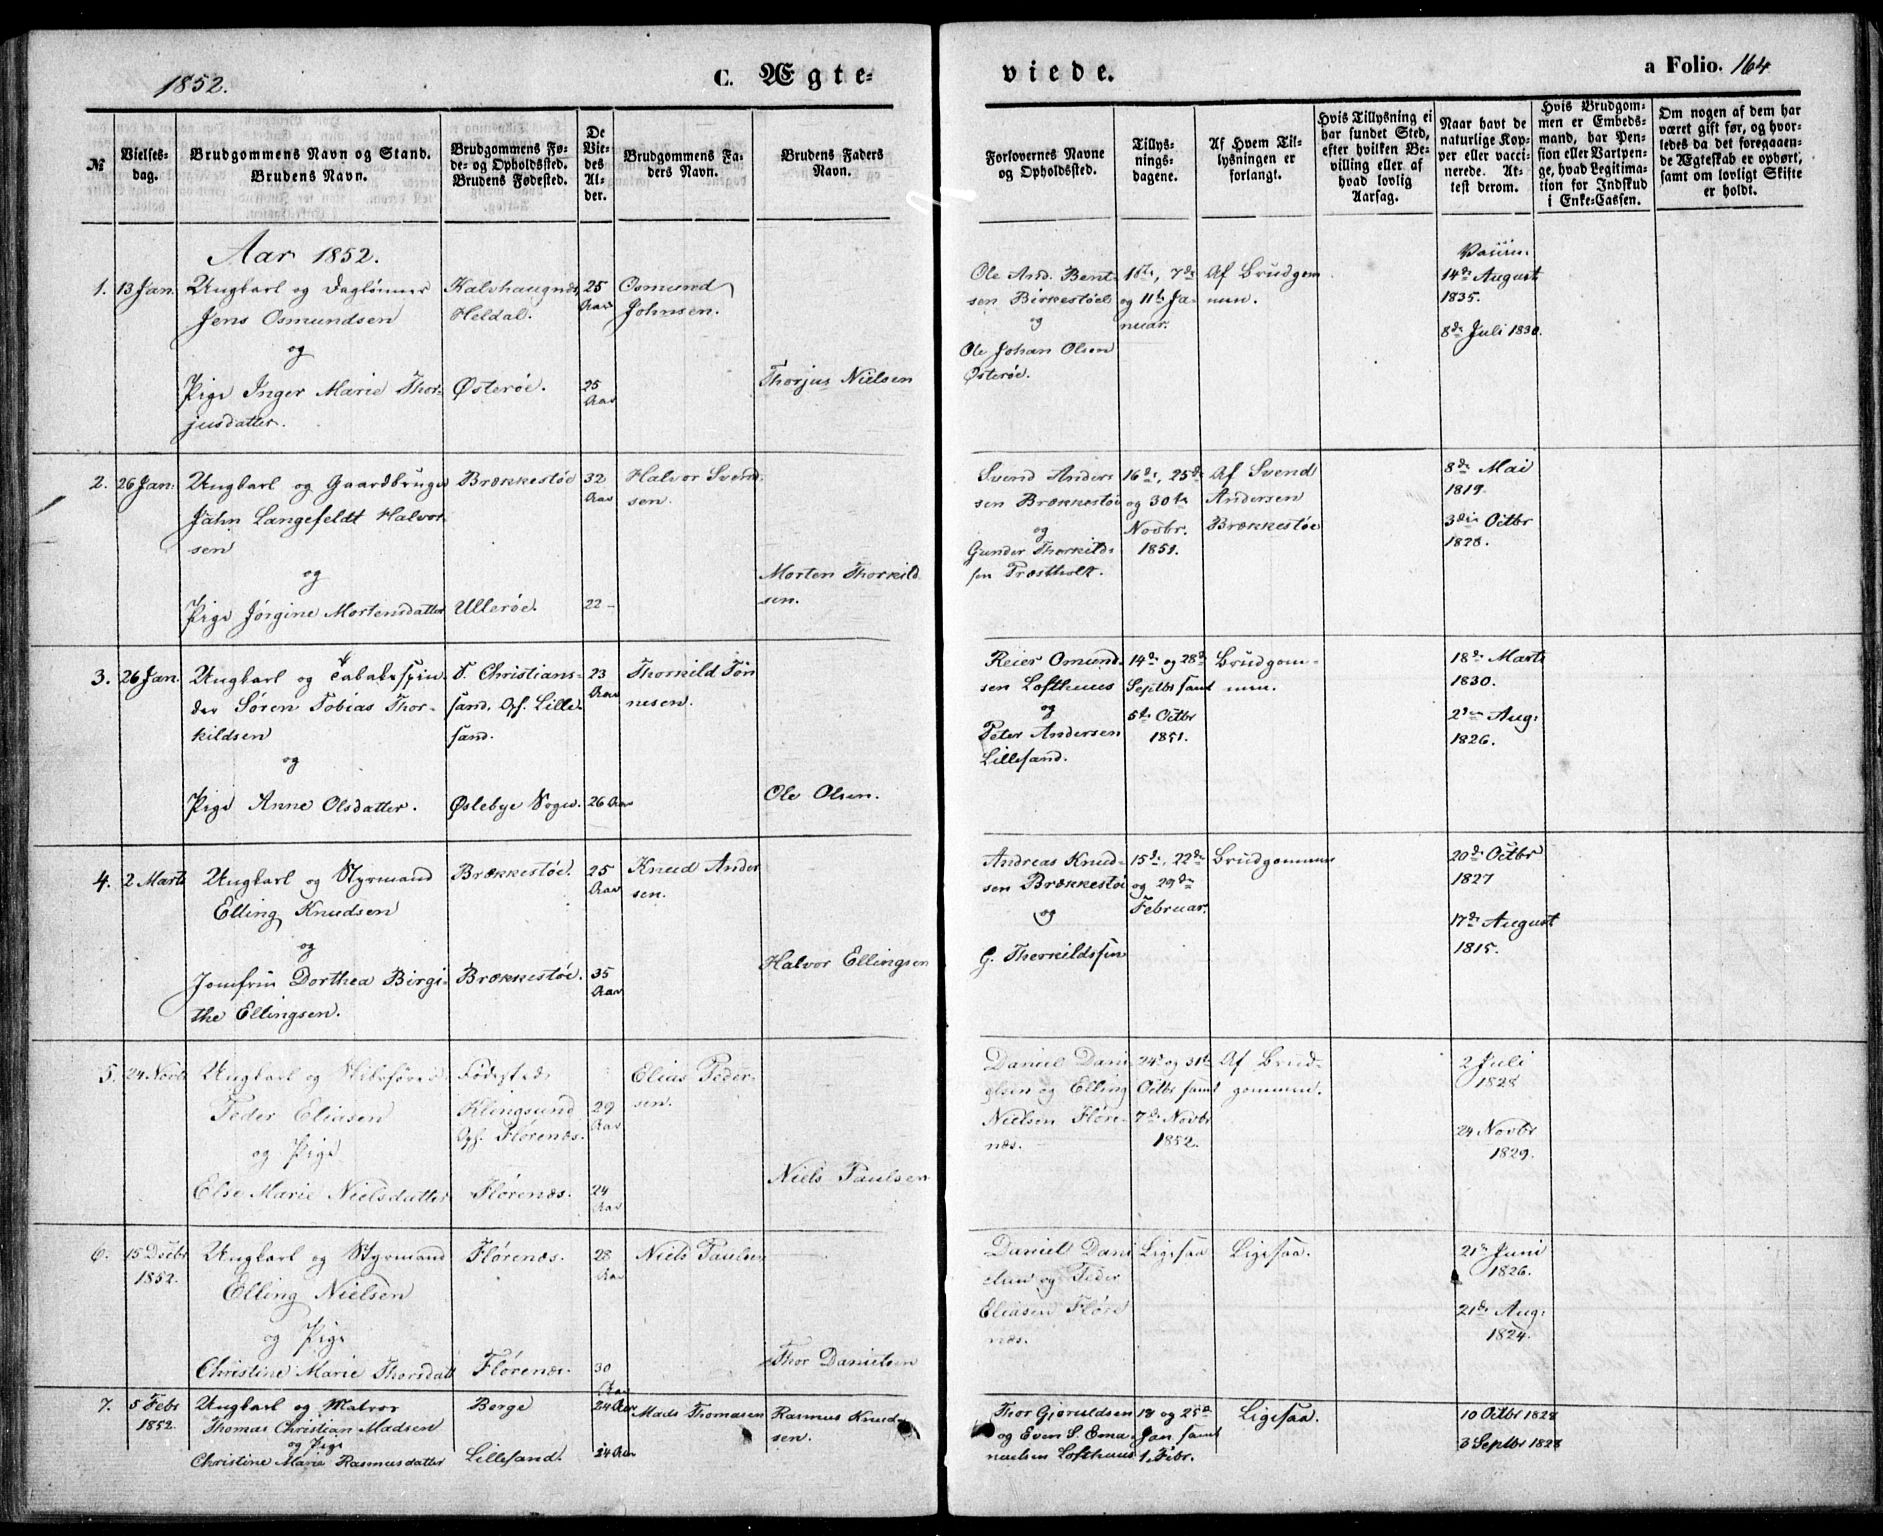 1852.
C. Ægte-
viede.
a Folio. 164
№
Vielses-
dag.
Brudgommens Navn og Stand.
Brudens Navn.
Brudgommens Fø-
de- og Opholdssted.
Brudens Fødested.
De
Vie-
des
Al-
der.
Brudgommens Fa-
ders Navn.
Brudens Faders
Navn.
Forlovernes Navne
og Opholdssted.
Tillys-
nings-
dagene.
Af Hvem Til-
lysningen er
forlangt.
Hvis Tillysning ei
har fundet Sted,
efter hvilken Be-
villing eller af
hvad lovlig
Aarsag.
Naar havt de
naturlige Kop-
per eller vacci-
nerede. At-
test derom.
Hvis Brudgom-
men er Embeds-
mand, har Pen-
sion eller Vartpen-
ge, hvad Legitima-
tion for Indskud
i Enke-Cassen.
Om nogen af dem har
været gift før, og hvor-
ledes da det foregaaen-
de Ægteskab er ophørt,
samt om lovligt Skifte
er holdt.
Aar 1852.
1. 13 Jan. Ungkarl og Daglønner
Jens Osmundsen
og
Pige Inger Marie Thor-
jusdatter.
Heldal.
Østerøe.
25
Aar
25
Aar
Osmund
Johnsen.
Thorjus Nielsen
Ole And. Bent-
sen Birkestøel
og
Ole Johan Olsen
Østerøe.
og 11te Ja-
nuar.
Af Brudgom
men.
14de August
1835.
8de Juli 1830.
2. 26 Jan. Ungkarl og Gaardbruger
Jahn Langefeldt Halvor
sen
og
Pige Jørgine Mortensdatter
Brækkestøe
Ullerøe.
32
Aar
22 –
Halvor Svend
sen.
Morten Thorkild
sen.
Svend Anders
sen Brækkestøe
og
Gunder Thorkild-
sen Præstholt.
16de, 25de
og 30te
Novbr.
1851.
Af Svend
Andersen
Brækkestøe
8de Mai
1819.
3die Octbr
1828.
3. 26 Jan. Ungkarl og Tabakspin
der Søren Tobias Thor-
kildsen
og
Pige Anne Olsdatter.
F. Christians-
sand, Oph. Lille
sand.
Øslebye Sogn.
23
Aar
26 Aar
Thorkild Tøn
nesen.
Ole Olsen.
Reier Omund
sen Lofthuus
og
Peter Andersen
Lillesand.
14de og 28de
Septbr samt
5te Octbr
1851.
Brudgom-
men.
18de Marts
1830.
2den Aug:
1826.
4. 2 Marts Ungkarl og Styrmand
Elling Knudsen
og
Jomfru Dorthea Birgi-
the Ellingsen.
Brækkestøe.
Brækkestøe.
25
Aar
35
Aar
Knud Ander
sen.
Halvor Ellingsen
Andreas Knud-
sen Brækkestøe
og
G. Thorkildssen
15de, 22de
og 29de
Februar.
Brudgommen
20de Octbr
1827
17de August
1815.
5. 24 Novbr Ungkarl og
Peder Eliasen
og Pige
Else Marie Nielsdatter
Fødested
Klingsund
Oph. Flørenæs.
Flørenæs.
29
Aar
24
Aar
Elias Peder-
sen.
Niels Paulsen
Daniel Dani
elsen og Elling
Nielsen Fløre-
næs.
24de og 31te
Octbr samt
7de Novbr
1852.
Af Brud-
gommen.
2 Juli
1828
24 Novbr
1829.
6. 15 Decbr
1852.
Ungkarl og Styrmand
Elling Nielsen
og Pige
Christine Marie Thorsdatt
Flørenæs.
Flørenæs.
28
Aar
30
Aar
Niels Paulsen
Thor Danielsen
Daniel Dani
elsen og Peder
Eliasen Fløre
næs.
Ligesaa
Ligesaa.
21de Juni
1826.
21de Aug:
1824.
7. 5 Febr
1852.
Ungkarl og Matros
Thomas Christian Madsen
og Pige
Christine Marie Rasmusdatter
Borge
Lillesand.
24 Aar
24 Aar
Mads Thomasen
Rasmus Knud-
sen.
Thor Gjeruldsen
og Even S. Ema-
nuelsen Lofthuus
18 og 25de
Jan. samt
1. Febr.
Ligesaa.
10 Octbr 1828
3 Septbr 1828